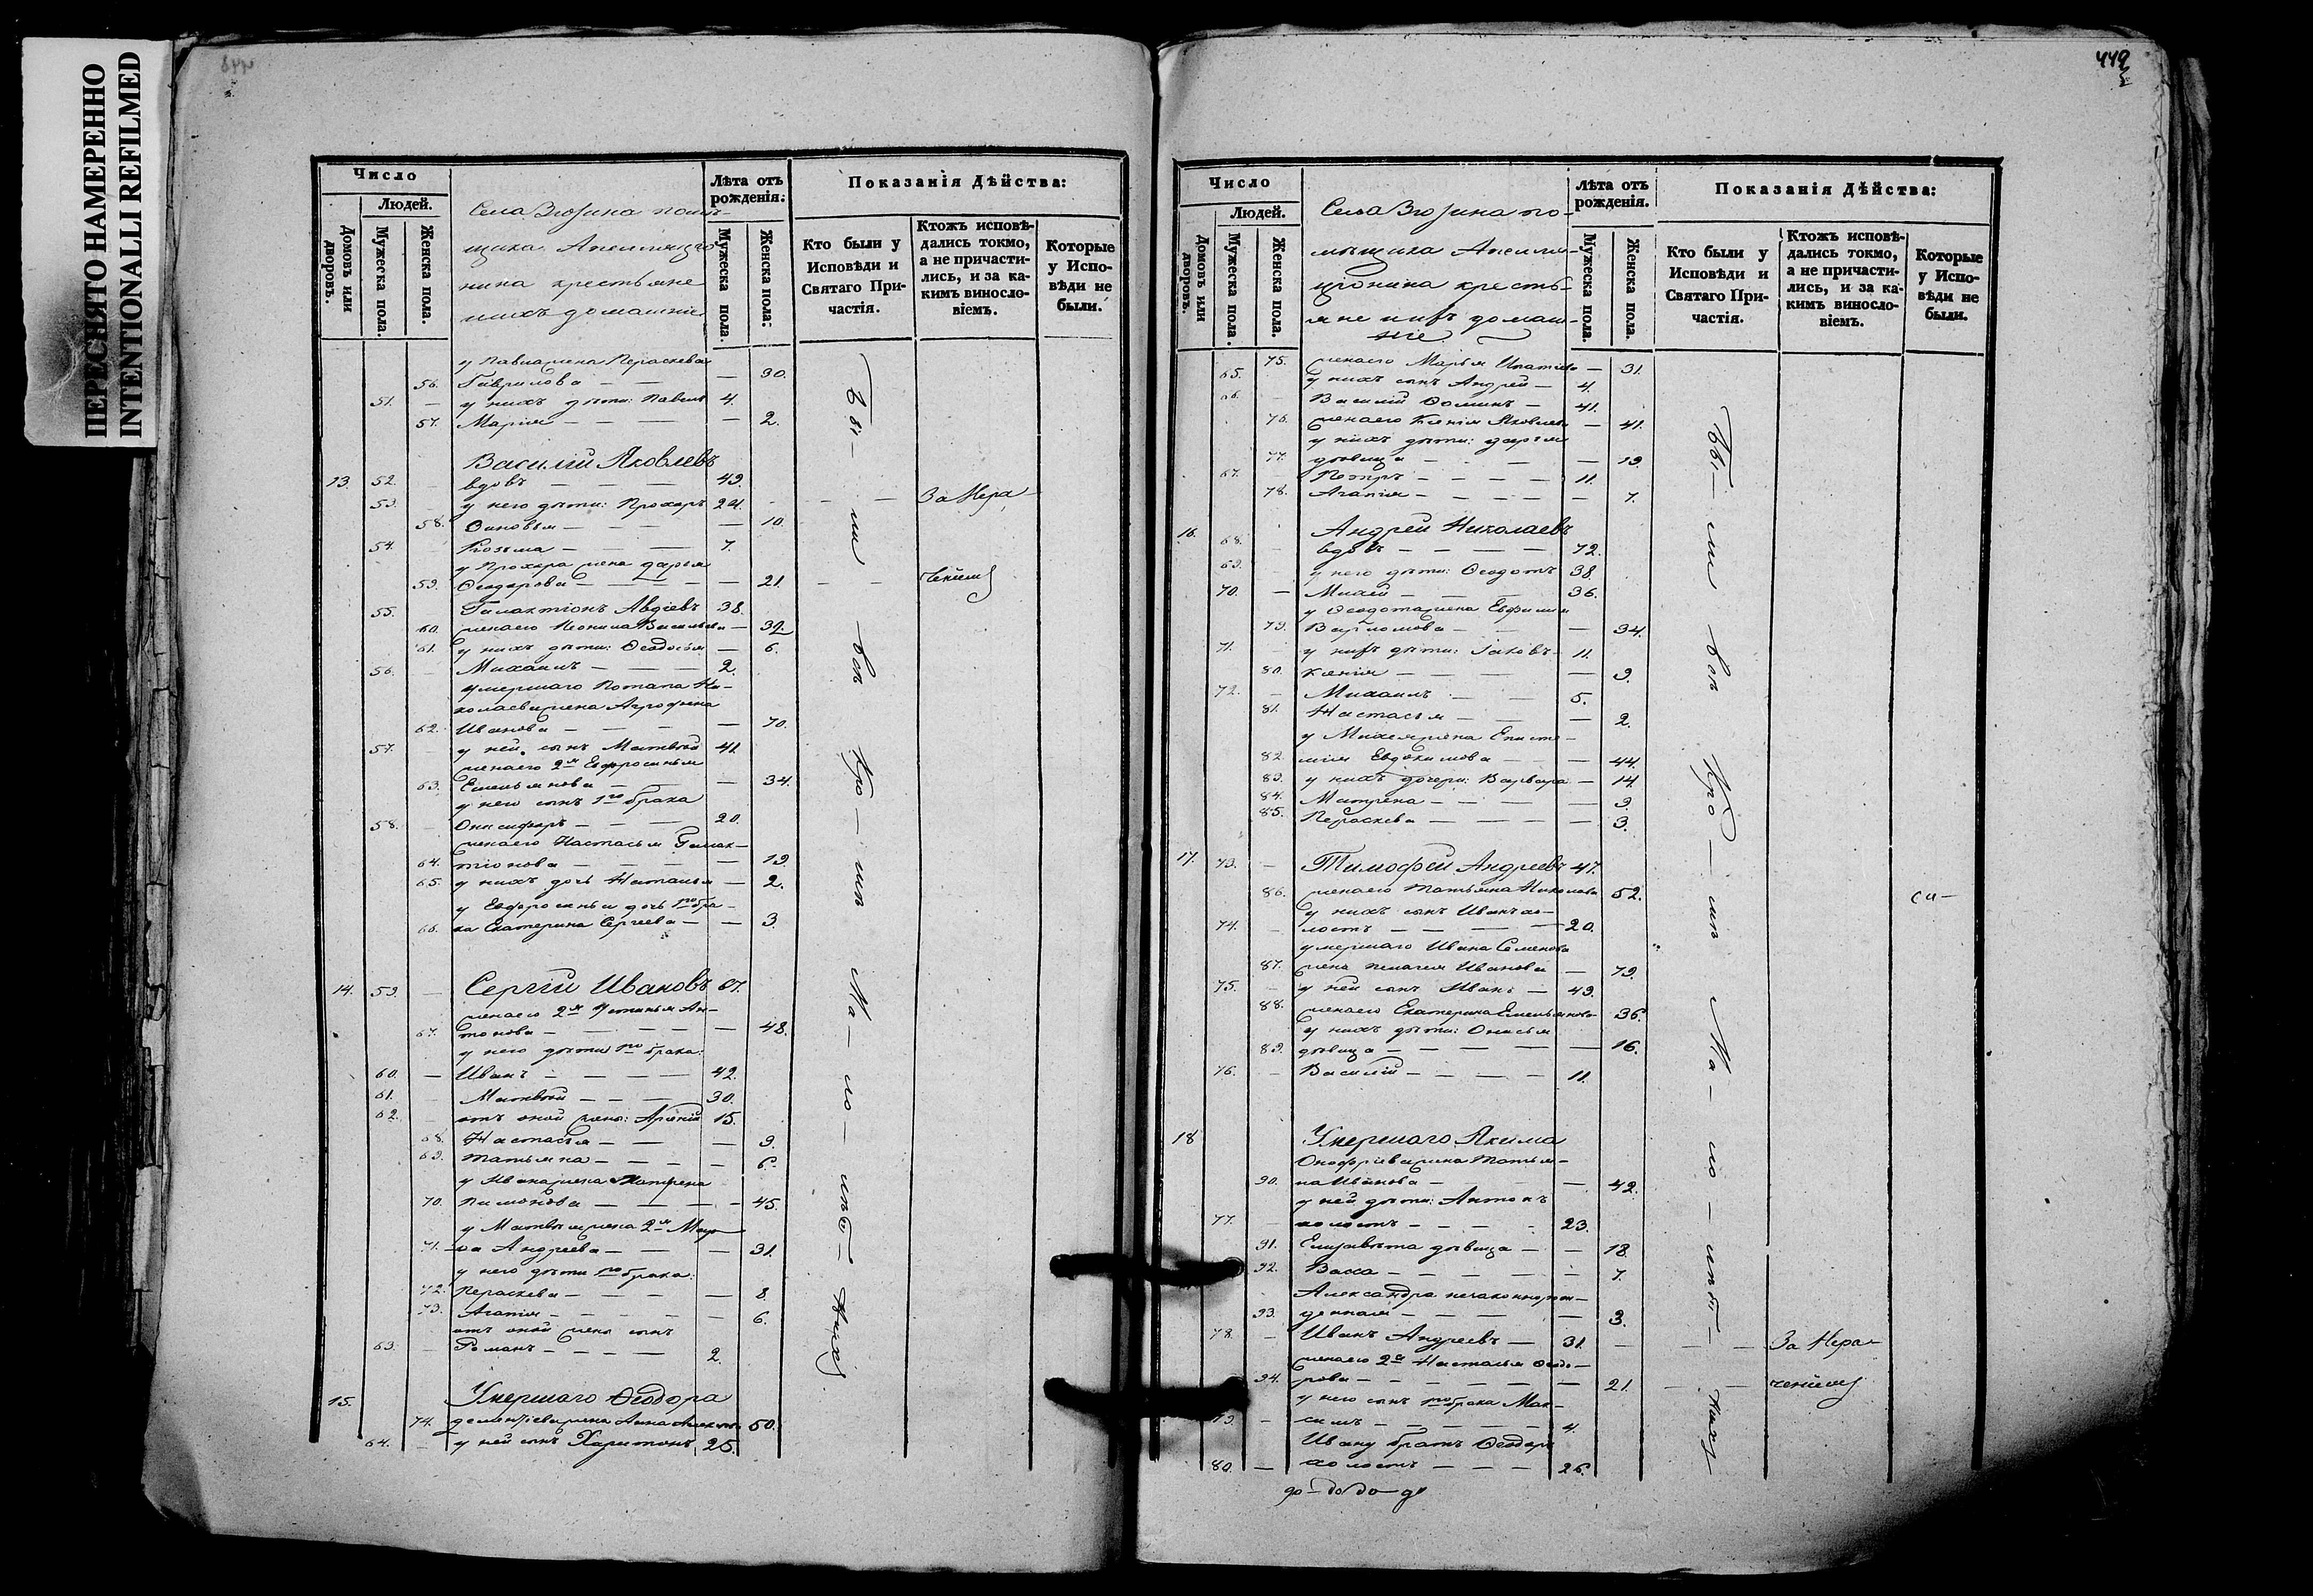 ПЕРЕСНЯТО НАМЕРЕННО
INTENTIONALLI REFILMED
Число
Людей.
Домовъ или дворовъ.
Мужеска пола.
Женска пола.
Села
крестьяне
ихъ домашніе
Лѣта отъ рожденія:
Мужеска пола.
Женска пола:
Показанія Дѣйства:
Кто были у Исповѣди и Святаго Причастія.
Ктожъ исповѣдались токмо, а не причастились, и за какимъ винословіемъ.
Которые у Исповѣди не были.
у Павла жена Параскева
56. Гаврилова — — — 30.
51. — у нихъ дѣти: Павелъ 4.
57. Марія — — — — 2.
Василій Яковлевъ
13. 52. вдовъ — — — 49.
53. у него дѣти: Прохоръ 24. — — За Нера-
58. Зиновья — — — — 10.
54. Козьма — — — 7.
у Прохора жена Дарья
59. Ѳеодорова — — — — 21. — — ченіемъ
55. Галактіонъ Авдіевъ 38.
60. жена его Неонила Васильева — 39.
61. у нихъ дѣти: Ѳеодосья — 6.
56. Михаилъ — — — 2.
умершаго Потапа Ни-
колаева жена Агрофена
62. Иванова — — — — 70.
57. у ней сынъ Матвѣй 41.
жена его 2я Евфросинья
63. Емельянова — — — 34.
у него сынъ 1го брака
58. Онисифоръ — — — 20.
жена его Настасья Галак-
64. тіонова — — — — 19.
65. у нихъ дочь Наталья — 2.
у Евфросиньи дочь 1го бра-
66. ка Екатерина Сергеева — — 3.
14. 59. — Сергій Ивановъ 67.
жена его 2я Устинья Ан-
67. тонова — — — — 48.
у него дѣти 1го брака:
60. — Иванъ — — — 42.
61. Матвѣй — — — 30.
62. отъ оной жены: Арсеній 15.
68. Настасья — — — 9.
69. Татьяна — — — — 6.
у Ивана жена Матрена
70. Пимонова — — — — 45.
у Матвѣя жена 2я Мар-
71. ѳа Андреева — — — 31.
у него дѣти 1го брака:
72. Параскева — — — — 8.
73. Агапія — — — — 6.
отъ оной жены сынъ
63. — Романъ — — — 2.
15. Умершаго Ѳеодора
74. Дементіева жена Анна 50.
64. — у ней сынъ Харитонъ 25.
Бы-
ли
всѣ
кро-
мѣ
Ма-
ло-
лѣт-
нихъ
442
Число
Людей.
Домовъ или дворовъ.
Мужеска пола.
Женска пола.
Села
крестья-
не ихъ домаш-
ніе
Лѣта отъ рожденія.
Мужеска пола.
Женска пола.
Показанія Дѣйства:
Кто были у Исповѣди и Святаго Причастія.
Ктожъ исповѣдались токмо, а не причастились, и за какимъ винословіемъ.
Которые у Исповѣди не были.
75. жена его Марья Ипатова — 31.
65. у нихъ сынъ Андрей — 4.
66. — Василій Ѳоминъ — 41.
76. жена его Ксенія Яковлева — 41.
у нихъ дѣти: Дарья
77. дѣвица — — — 19.
67. Петръ — — — — 11.
78. Агапія — — — — — 7.
16. Андрей Николаевъ
68. — вдовъ — — — — 72.
69. у него дѣти: Ѳеодотъ 38.
70. — Михей — — — 36.
у Ѳеодота жена Евфимія
79. — — — 34.
71. у нихъ дѣти: Іаковъ — 11.
80. Ксенія — — — — — 9.
72. — Михаилъ — — 5.
81. Настасья — — — 2.
у Михея жена Еписте-
82. мія Евдокимова — — — 44.
83. у нихъ дочери: Варвара — 14.
84. Матрена — — — — 9.
85. Параскева — — — — 3.
17. 73. — Тимофей Андреевъ 47.
86. жена его Татьяна Николаева 52. си-
у нихъ сынъ Иванъ хо-
74. лостъ — — — — 20.
умершаго Ивана Семенова
87. жена Пелагея Иванова — 79.
75. — у ней сынъ Иванъ — 49.
88. жена его Екатерина Емельянова 36.
у нихъ дѣти: Онисья
89. дѣвица — — — — — 16.
76. — Василій — — — — 11.
18 Умершаго Якима
Онофріева жена Татья-
90. на Иванова — — — 42.
у ней дѣти: Антонъ
77. — холостъ — — — 23.
91. Елизавета дѣвица — — 18.
92. Васса — — — — — 7.
Александра незаконнорож-
93. денная — — — — 3.
78. — Иванъ Андреевъ — 31. — — — За Нера-
жена его 2я Наталья Ѳеодо-
94. рова — — — — — 21. — — ченіемъ
у него сынъ 1го брака Мак-
79. — симъ — — — — 4.
Ивану братъ Ѳеодоръ
80. — холостъ — — — 26.
Бы-
ли
всѣ
кро-
мѣ
Ма-
ло-
лѣт-
нихъ